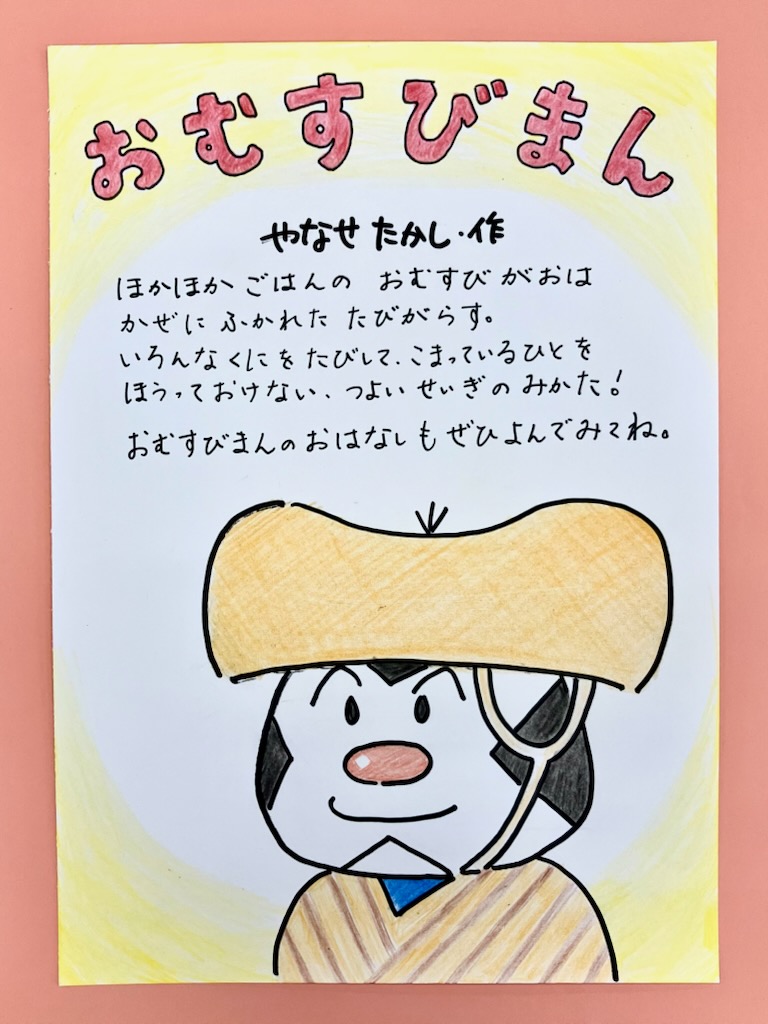 おむすびまん
やなせたかし・作
ほかほかごはんの おむすびがおは
かぜに ふかれた たびがらす。
いろんなくにを たびして、こまっているひとを
ほうっておけない、つよいせいぎのみかた!
おむすびまんのおはなしも ぜひよんでみてね。